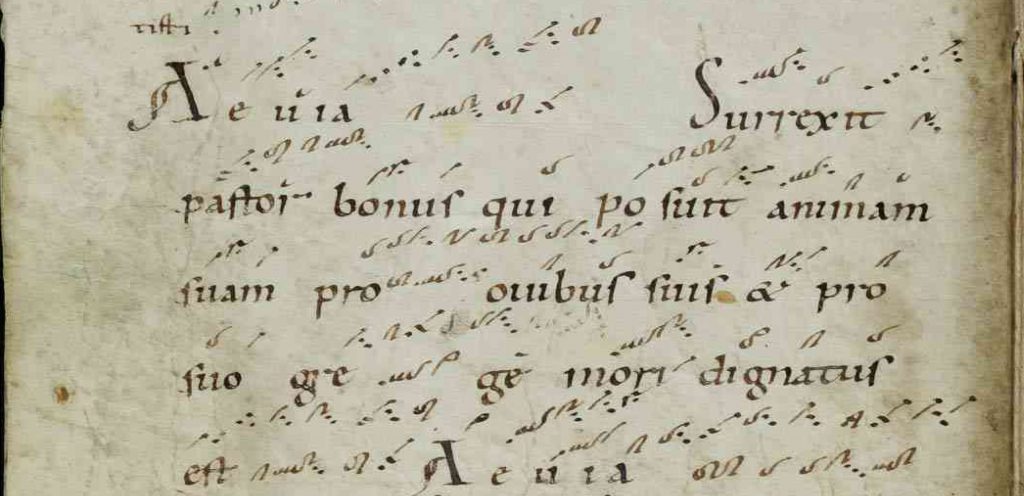 tisti
Aeuia Surrexit
pastor bonus qui posuit animam
suam pro ouibus suis & pro
suo grege mori dignatus
est Aeuia